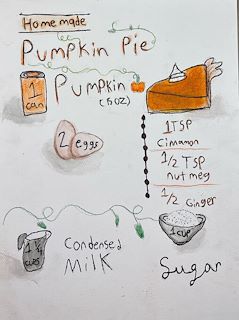 Homemade
Pumpkin Pie
1
can
Pumpkin
(15oz)
2 eggs
1 TSP
Cinnamon
1/2 TSP
nutmeg
1/2 Ginger
1 1/4
cups
Condensed
Milk
1 cup
Sugar